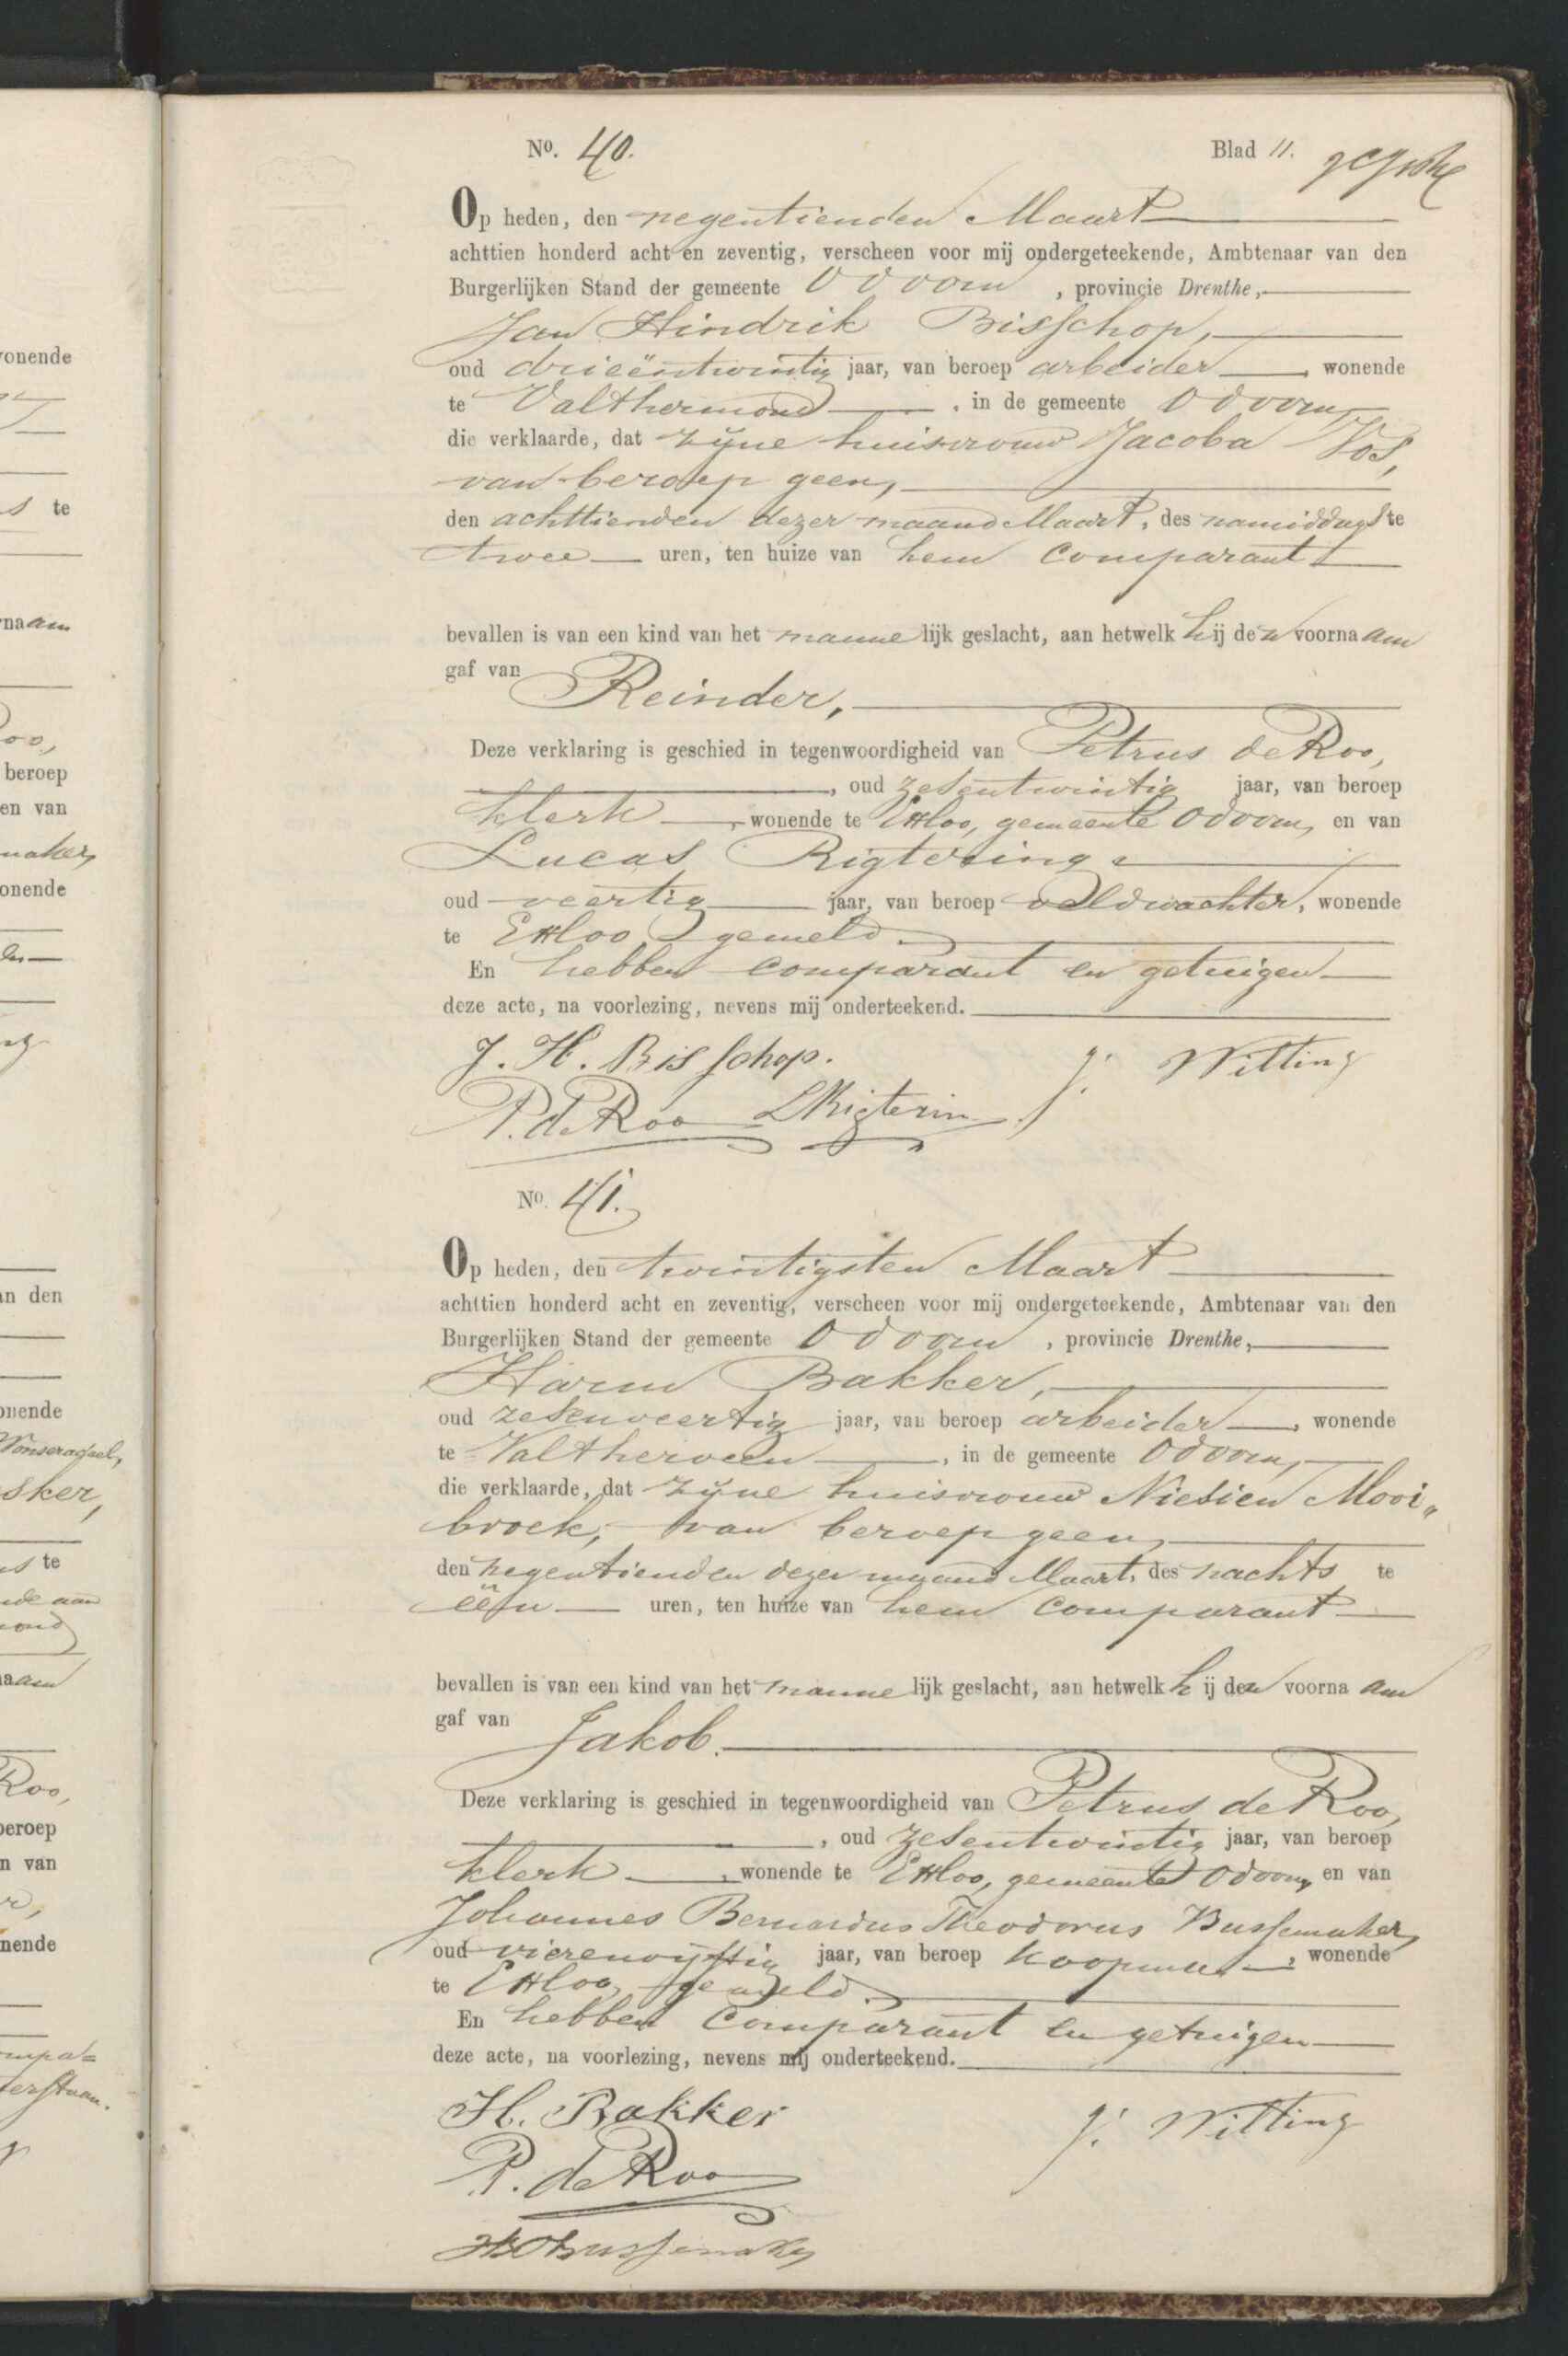 No. 40.
Blad 11.
Op heden, den negentienden Maart
achttien honderd acht en zeventig, verscheen voor mij ondergeteekende, Ambtenaar van den
Burgerlijken Stand der gemeente Odoorn, provincie Drenthe,
Jan Hindrik Bisschop,
oud drieëntwintig jaar, van beroep arbeider, wonende
te Valthermond, in de gemeente Odoorn,
die verklaarde, dat zijne huisvrouw Jacoba Vos,
van beroep geen,
den achttienden dezer maand Maart, des namiddags te
twee uren, ten huize van hem comparant
bevallen is van een kind van het mannelijk geslacht, aan hetwelk hij den voornaam
gaf van Reinder,
Deze verklaring is geschied in tegenwoordigheid van Petrus de Roo,
, oud zesentwintig jaar, van beroep
klerk, wonende te Exloo, gemeente Odoorn, en van
Lucas Rigtering,
oud veertig jaar, van beroep veldwachter, wonende
te Exloo gemeld.
En hebben comparant en getuigen
deze acte, na voorlezing, nevens mij onderteekend.
J. H. Bisschop. J. Wilting
P. de Roo LRigterin
No. 41.
Op heden, den twintigsten Maart
achttien honderd acht en zeventig, verscheen voor mij ondergeteekende, Ambtenaar van den
Burgerlijken Stand der gemeente Odoorn, provincie Drenthe,
Harm Bakker,
oud zesenveertig jaar, van beroep arbeider, wonende
te Valtherveen, in de gemeente Odoorn,
die verklaarde, dat zijne huisvrouw Niesien Mooi„
broek, van beroep geen,
den negentienden dezer maand Maart, des nachts te
één uren, ten huize van hem comparant
bevallen is van een kind van het mannelijk geslacht, aan hetwelk hij den voornaam
gaf van Jakob.
Deze verklaring is geschied in tegenwoordigheid van Petrus de Roo,
, oud zesentwintig jaar, van beroep
klerk, wonende te Exloo, gemeente Odoorn, en van
Johannes Bernardus Theodorus Bussemaker,
oud vierenvijftig jaar, van beroep koopman, wonende
te Exloo gemeld.
En hebben comparant en getuigen
deze acte, na voorlezing, nevens mij onderteekend.
H. Bakker J. Wilting
P. de Roo
Bussemaker